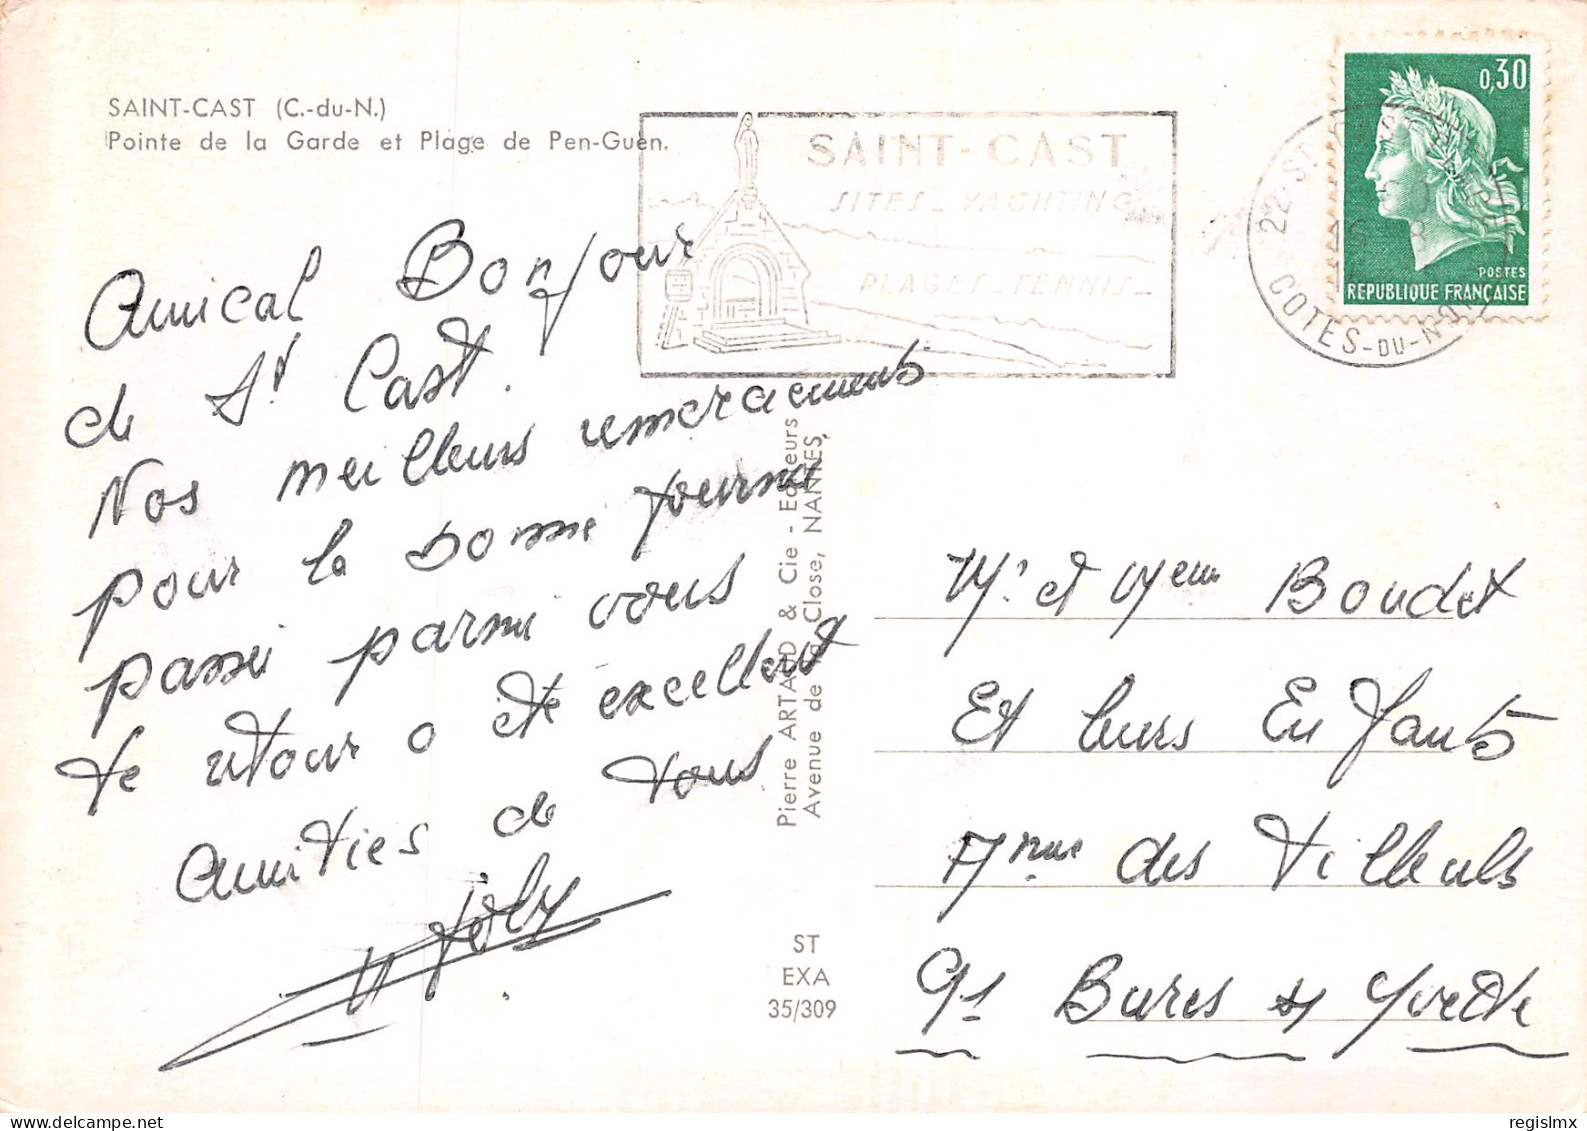 SAINT-CAST (C.-du-N.)
Pointe de la Garde et Plage de Pen-Guen.
Amical Bonjour
de St Cast.
Nos meilleurs remerciements
pour la bonne journée
passée parmi vous
Le retour a été excellent
Amitiés de tous
Joly
Pierre ARTAUD & Cie - Editeurs
Avenue de la Close, NANTES
ST
EXA
35/309
SAINT-CAST
SITES_YACHTING
PLAGES_TENNIS_
22 ST
COTES-DU-N
0,30
POSTES
REPUBLIQUE FRANÇAISE
Mr et Mme Boudet
Et leurs Enfants
des Tilleuls
91 Bures s/ Yvette
regislmx